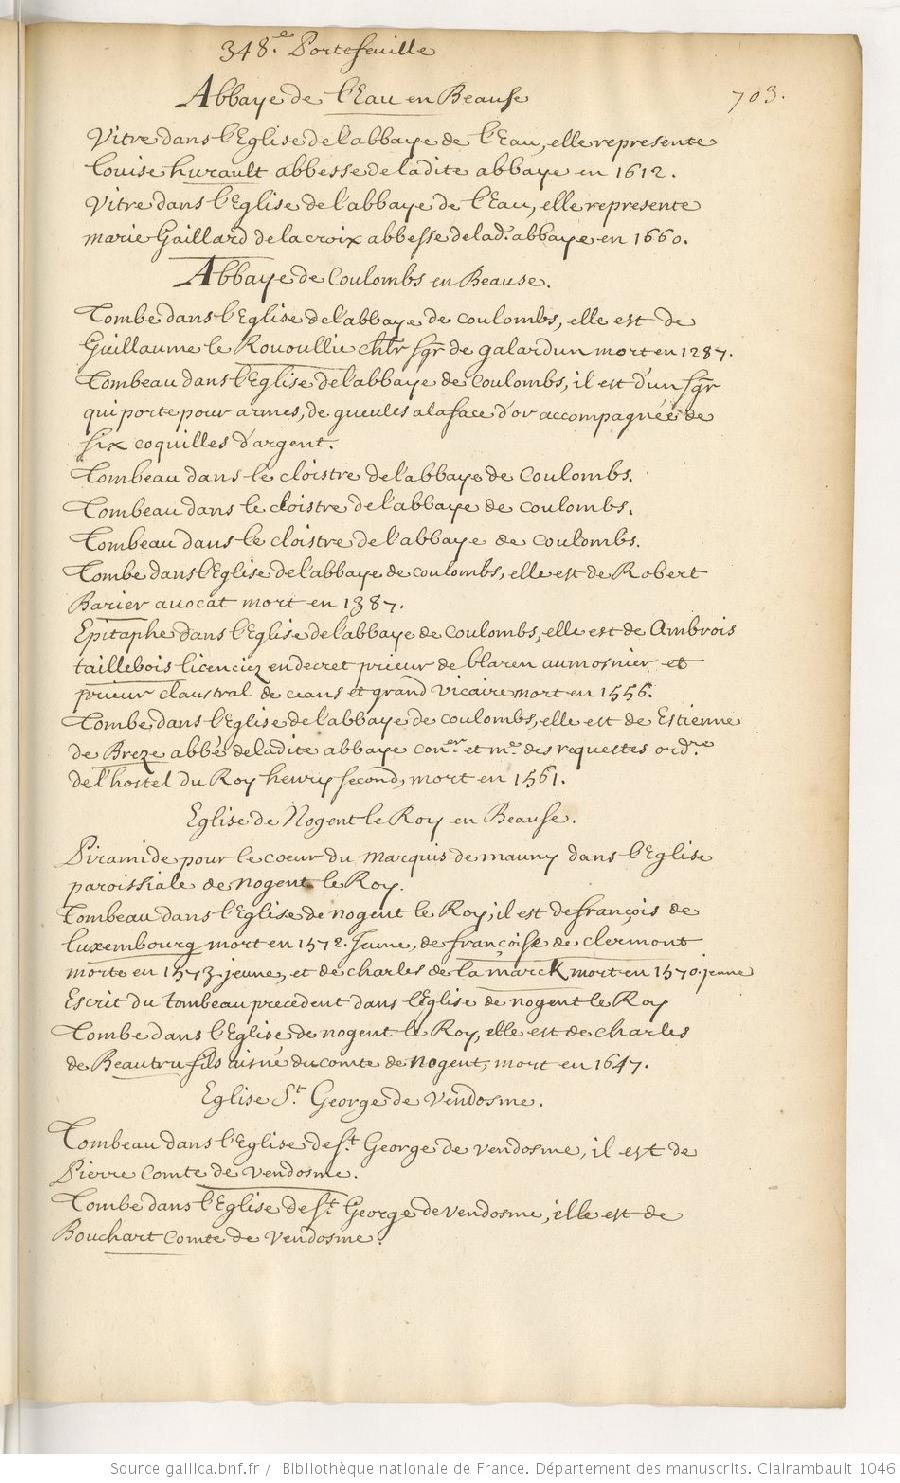 348.e Portefeuille
703.
Abbaye de l'Eau en Beausse
Vitre dans l'Eglise de l'abbaye de l'Eau, elle represente
Louise hurault abbesse de ladite abbaye en 1612.
Vitre dans l'Eglise de l'abbaye de l'Eau, elle represente
marie Gaillard de la croix abbesse de lad.e abbaye en 1660.
Abbaye de Coulombs en Beausse.
Tombe dans l'Eglise de l'abbaye de coulombs, elle est de
Guillaume le chlr sgr de galardun mort en 1287.
Tombeau dans l'Eglise de l'abbaye de coulombs, il est d'un sgr
qui porte pour armes, de gueules a la face d'or accompagnée de
six coquilles d'argent.
Tombeau dans le cloistre de l'abbaye de Coulombs.
Tombeau dans le cloistre de l'abbaye de coulombs.
Tombeau dans le cloistre de l'abbaye de coulombs.
Tombe dans l'Eglise de l'abbaye de coulombs, elle est de Robert
Barier avocat mort en 1387.
Epitaphe dans l'Eglise de l'abbaye de coulombs, elle est de Ambrois
taillebois licenciez en decret prieur de blaren aumosnier et
prieur claustral de ceans et grand vicaire mort en 1556.
Tombe dans l'Eglise de l'abbaye de coulombs, elle est de Estienne
de Breze abbé de ladite abbaye con.er et m.e des requestes ordre
de l'hostel du Roy henry second, mort en 1561.
Eglise de Nogent le Roy en Beausse.
Piramide pour le coeur du Marquis de mauny dans l'Eglise
paroissiale de nogent le Roy.
Tombeau dans l'Eglise de nogent le Roy, il est de françois de
Luxembourg mort en 1572. Jeune, de françoise de clermont
morte en 1573. jeune, et de charles de la marck mort en 1570. jeune
Escrit du tombeau precedent dans l'Eglise de nogent le Roy
Tombe dans l'Eglise de nogent le Roy, elle est de charles
de Beautru fils aisné du comte de Nogent, mort en 1647.
Eglise St. George de Vendosme.
Tombeau dans l'Eglise de st. George de vendosme, il est de
Pierre Comte de vendosme.
Tombe dans l'Eglise de st. George de vendosme, elle est de
Bouchart Comte de vendosme.
Source gallica.bnf.fr / Bibliothèque nationale de France. Département des manuscrits. Clairambault 1046